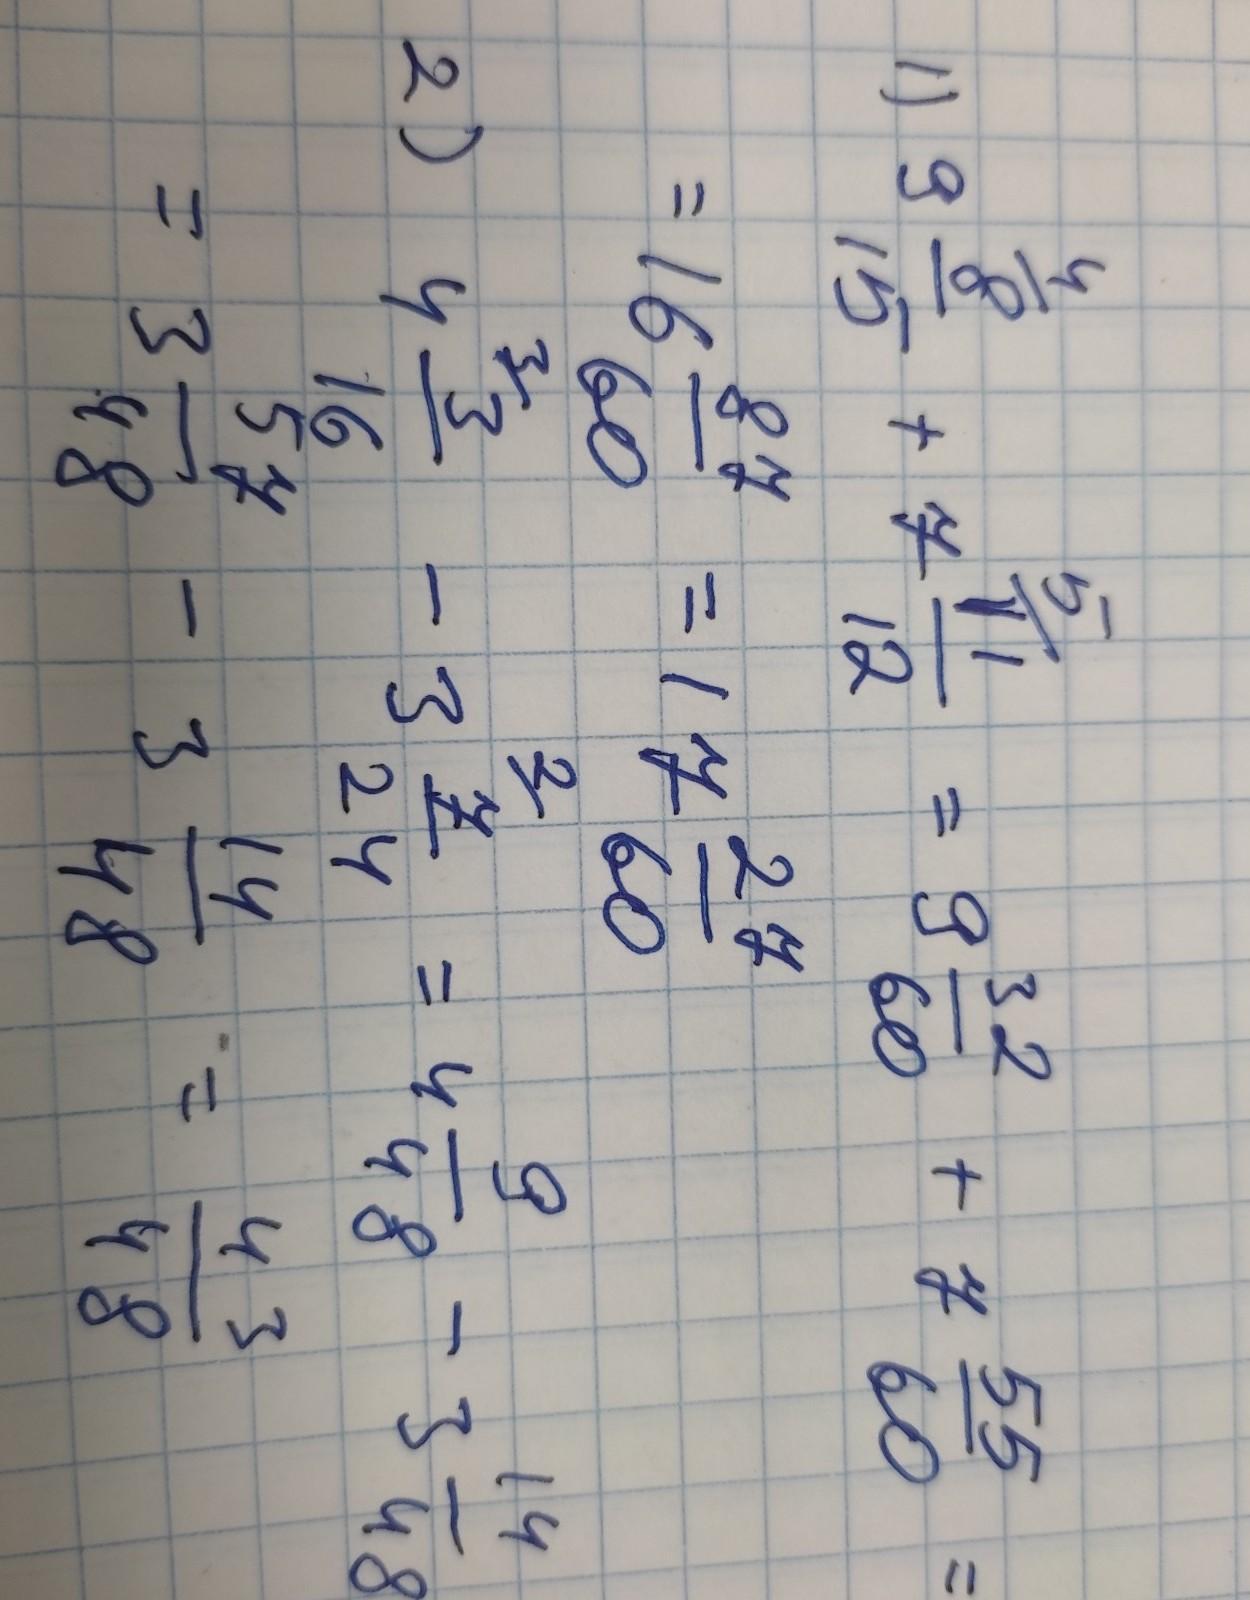 1) 9 8/15 (4 + 7 11/12 (5 = 9 32/60 + 7 55/60 =
= 16 87/60 = 17 27/60
2) 4 3/16 (3 - 3 7/24 (2 = 4 9/48 - 3 14/48
= 3 57/48 - 3 14/48 = 43/48